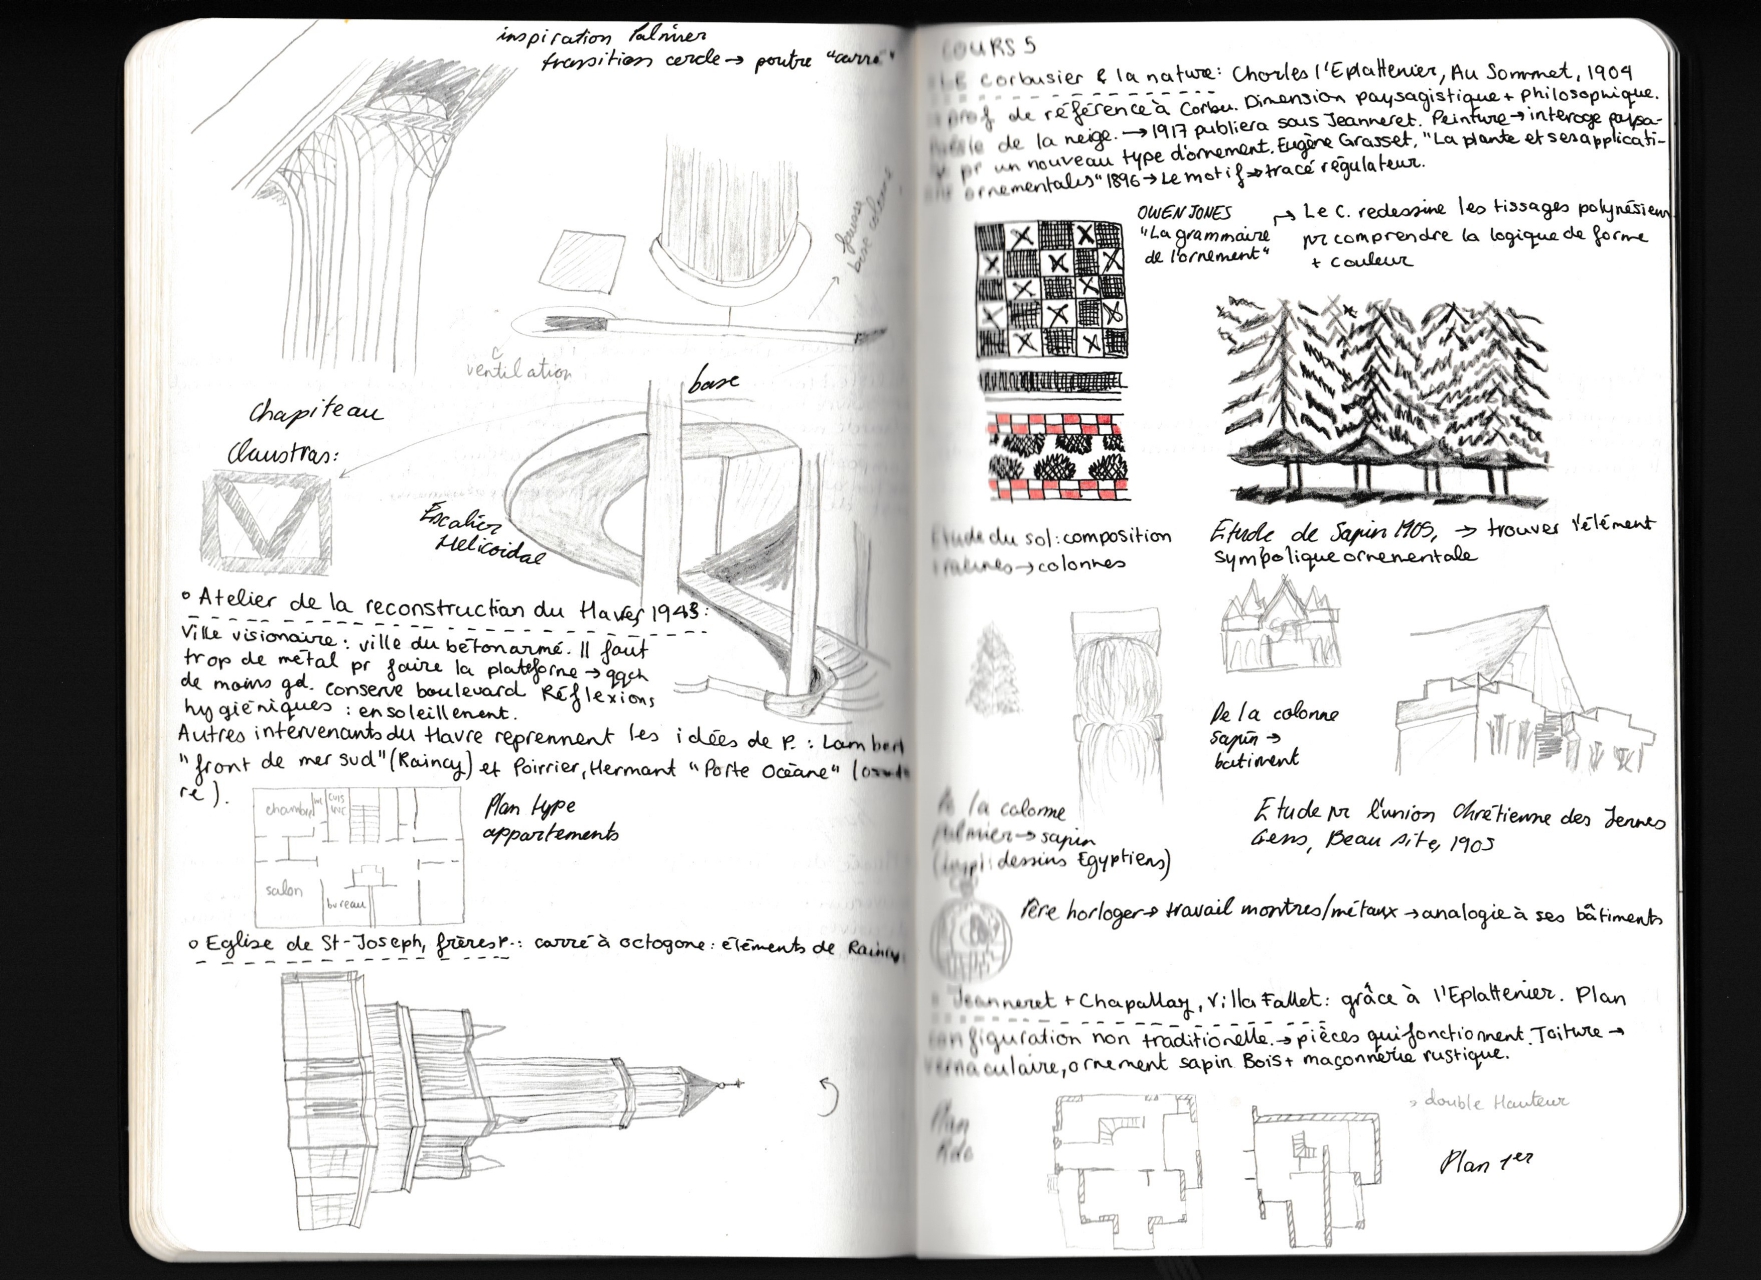 inspiration Palmier
transition cercle → poutre "carré"
fausse
base colonne
ventilation
base
Chapiteau
Claustras:
Escalier
Hélicoïdal
° Atelier de la reconstruction du Havre, 1943:
Ville visionaire : ville du béton armé. Il faut
trop de métal pr faire la plateforme → qqch
de moins gd. conserve boulevard Réflexions
hygiéniques : ensoleillement.
Autres intervenants du Havre reprennent les idées de P. : Lambert
"front de mer sud" (Raincy) et Poirrier, Hermant "Porte Océane" (
re).
chambre wc cuisine
salon
bureau
Plan type
appartements
° Eglise de St-Joseph, frères P.: carré à octogone: éléments de Raincy
COURS 5
° LE Corbusier & la nature: Charles l'Eplattenier, Au Sommet, 1904
prof de référence à Corbu. Dimension paysagistique + philosophique.
de la neige. → 1917 publiera sous Jeanneret. Peinture → interoge paysa-
pr un nouveau type d'ornement. Eugène Grasset, "La plante et ses applicati-
ornementales" 1896 → Le motif → tracé régulateur.
OWEN JONES
"La grammaire
de l'ornement"
→ Le C. redessine les tissages polynésiens
pr comprendre la logique de forme
+ couleur
Etude du sol: composition
racines → colonnes
Etude de Sapin 1905, → trouver l'élément
symbolique ornementale
De la colonne
sapin →
batiment
De la colonne
palmier → sapin
(dessins Egyptiens)
Etude pr l'union Chrétienne des Jeunes
Gens, Beau site, 1905
Père horloger → travail montres/métaux → analogie à ses bâtiments
° Jeanneret + Chapallaz, Villa Fallet: grâce à l'Eplattenier. Plan
configuration non traditionelle. → pièces qui fonctionnent. Toiture →
vernaculaire, ornement sapin Bois + maçonnerie rustique.
Plan
Rdc
→ double Hauteur
Plan 1er